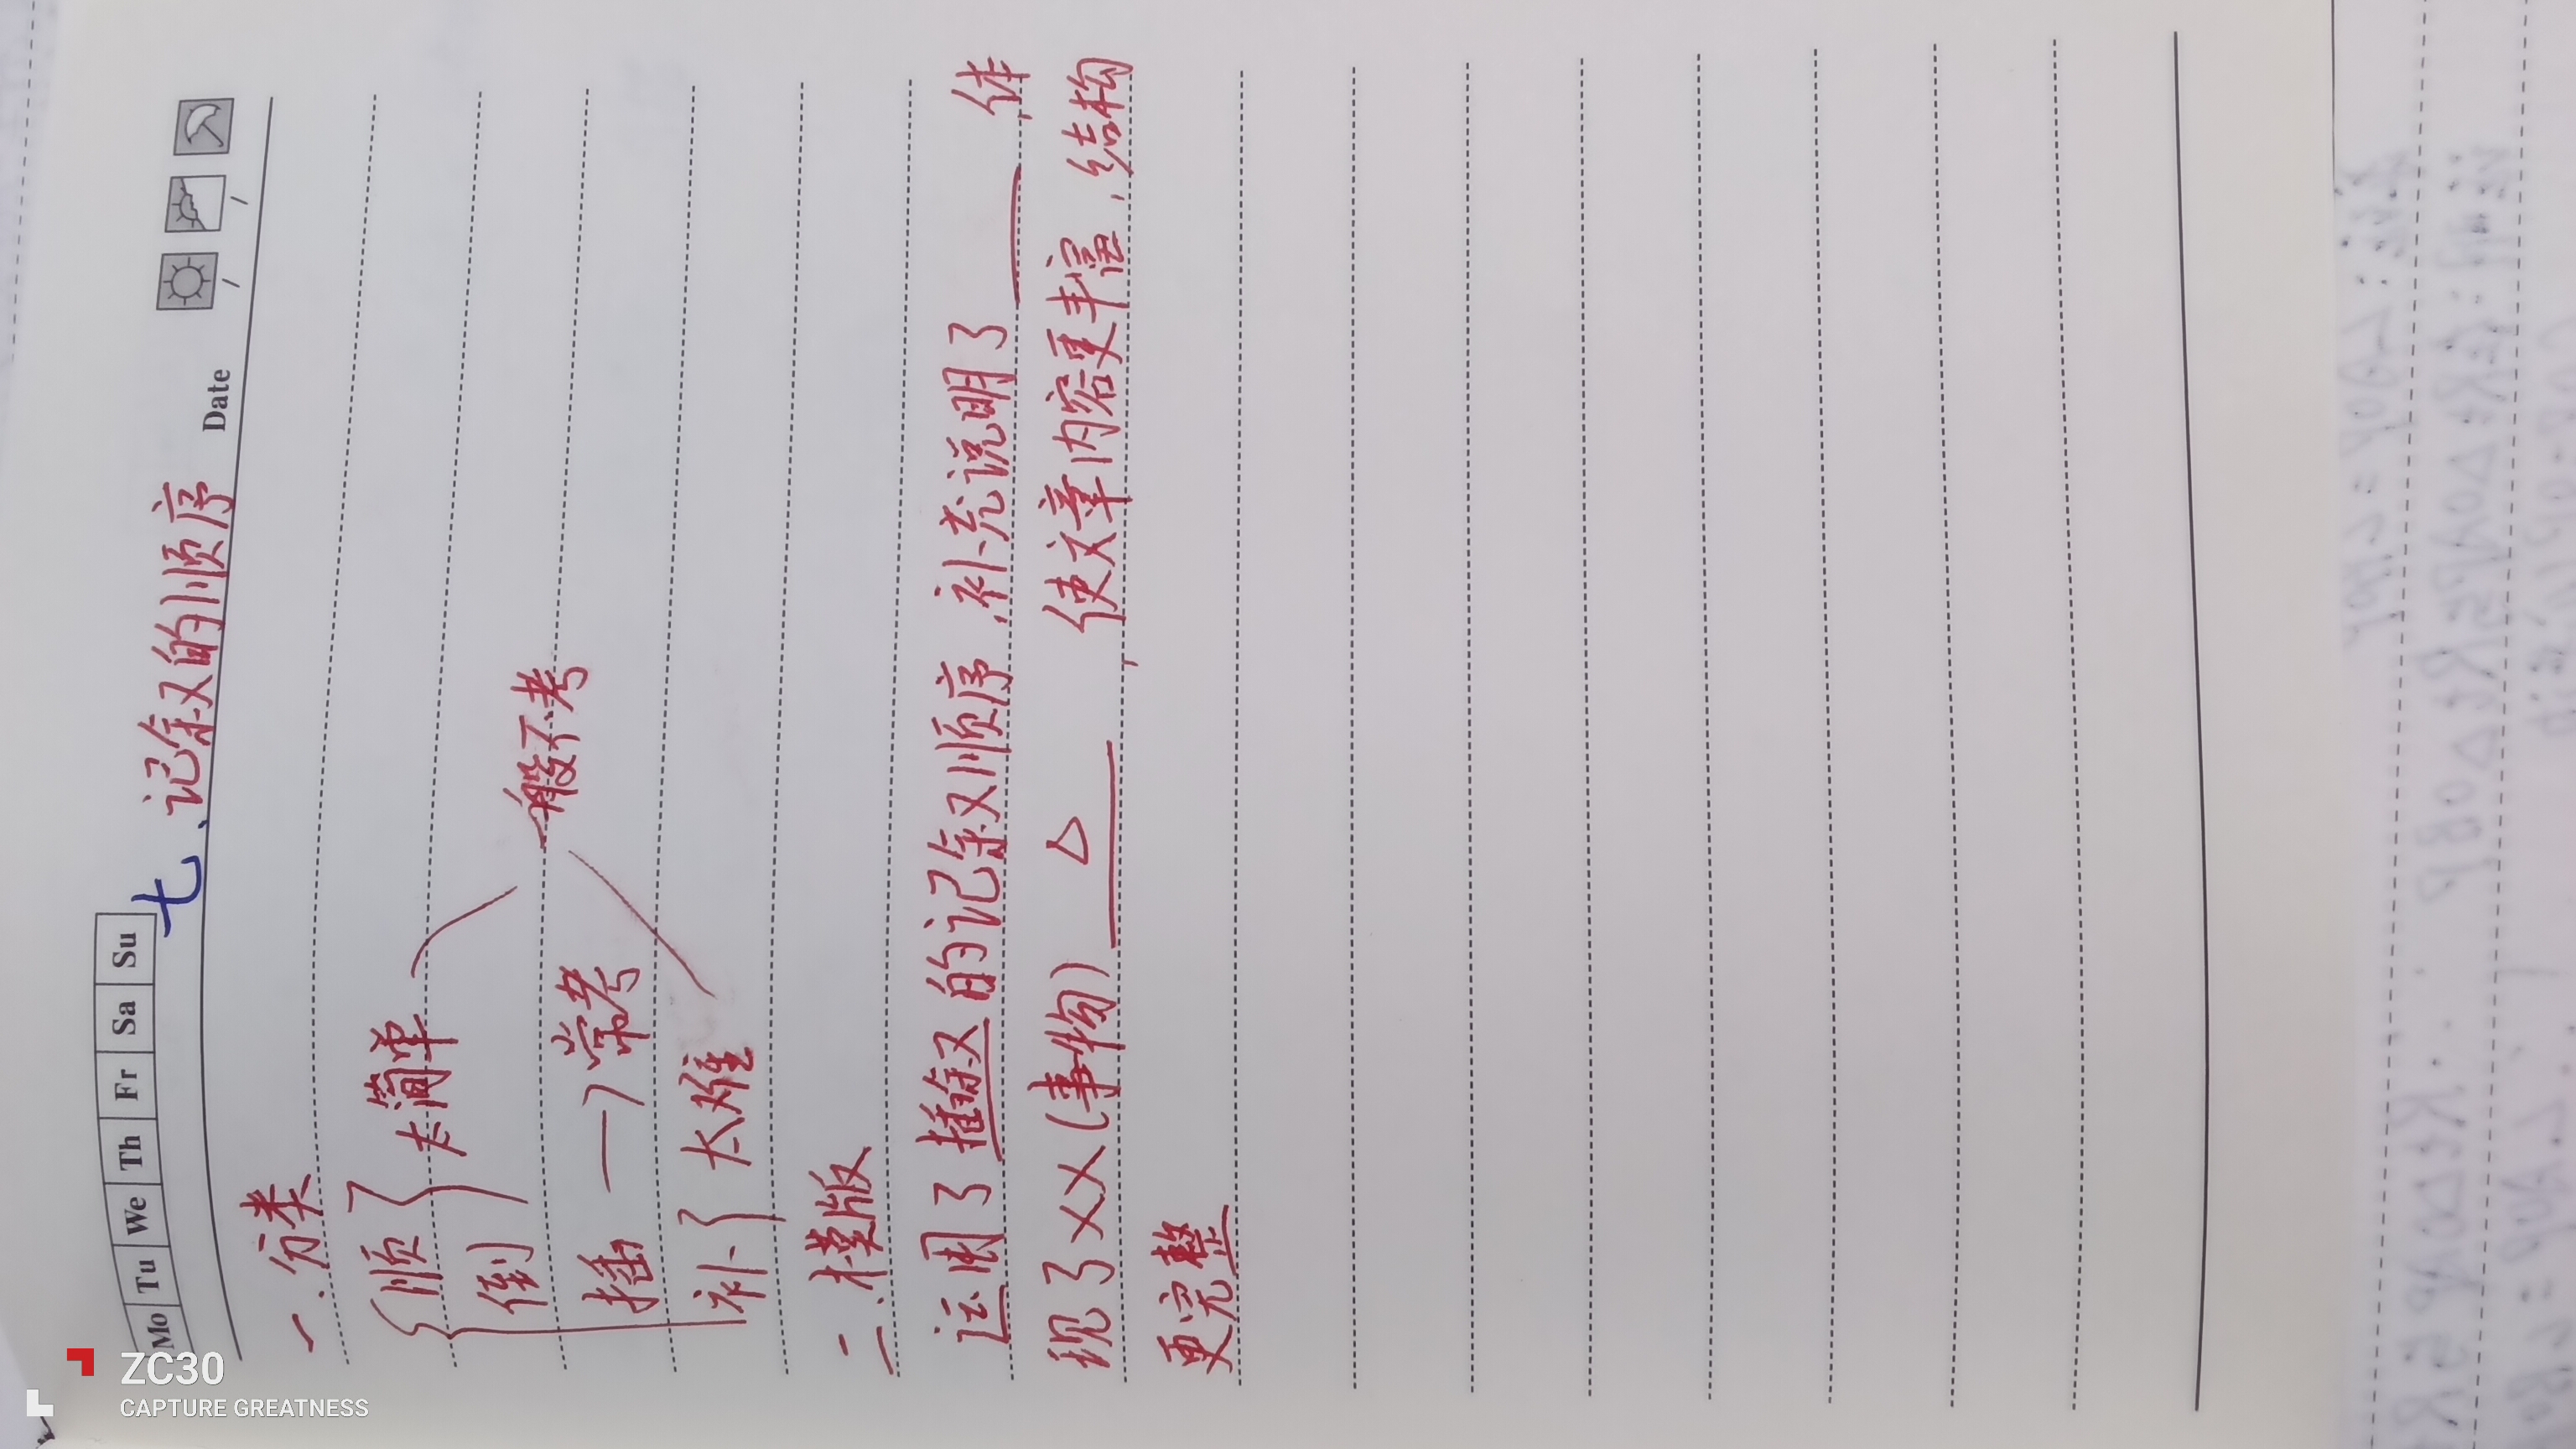 Mo Tu We Th Fr Sa Su
七、记叙文的顺序 Date
一.分类
顺
倒
太简单
一般不考
插 → 常考
补 太难
二.模版
运用了插叙文的记叙文顺序,补充说明了 ,体
现了××(事物) △ ,使文章内容更丰富,结构
更完整
ZC30
CAPTURE GREATNESS